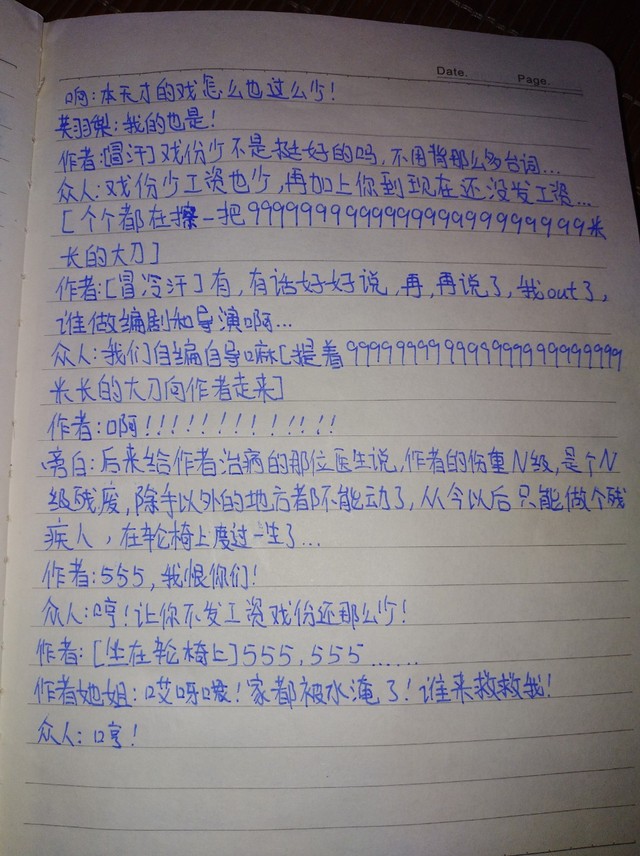 Date. Page.
响:本天才的戏怎么也这么少!
英羽梨:我的也是!
作者:[冒汗]戏份少不是挺好的吗,不用背那么多台词...
众人:戏份少工资也少,再加上你到现在还没发工资...
[个个都在擦一把9999999999999999999999999米
长的大刀]
作者:[冒冷汗]有,有话好好说,再,再说了,我out了,
谁做编剧和导演啊...
众人:我们自编自导嘛[提着99999999999999999999999
米长的大刀向作者走来]
作者:啊!!!!!!!!!!!!!
旁白:后来给作者治病的那位医生说,作者的伤重N级,是个N
级残废,除手以外的地方都不能动了,从今以后只能做个残
疾人,在轮椅上度过一生了...
作者:555,我恨你们!
众人:哼!让你不发工资戏份还那么少!
作者:[坐在轮椅上]555,555......
作者她姐:哎呀喂!家都被水淹了!谁来救救我!
众人:哼!